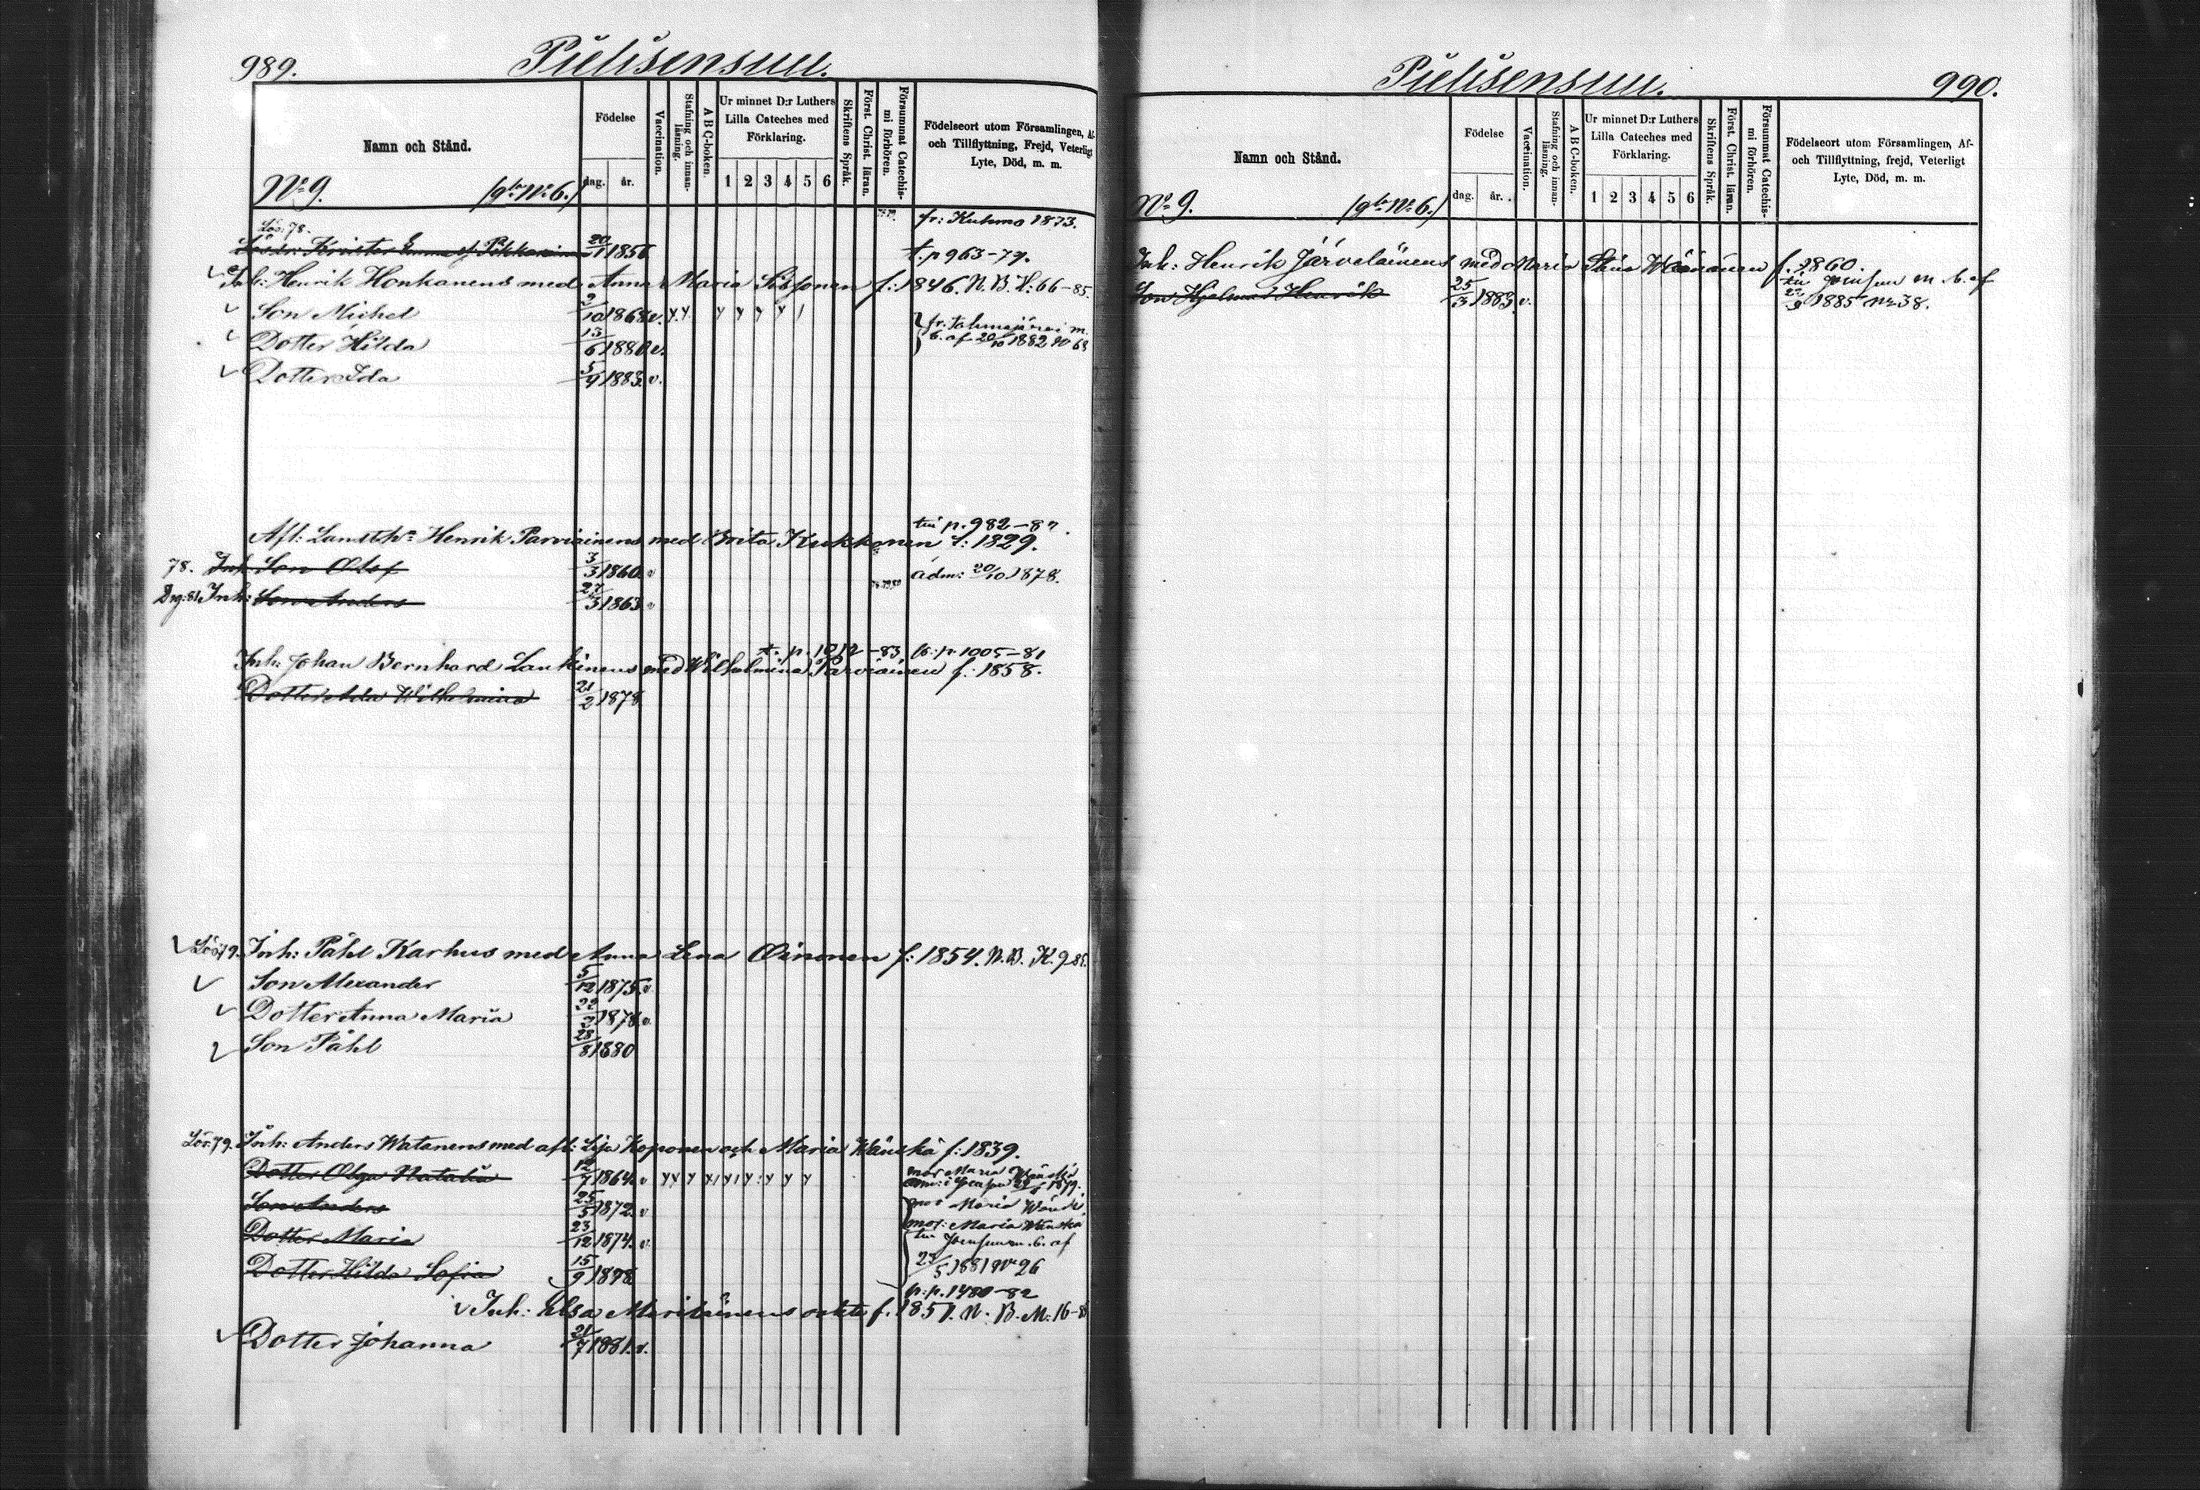 989.
Pielisensuu.
Namn och Stånd.
Födelse
dag. år.
Vaccination.
Stafning och innanläsning.
ABC-boken.
Ur minnet D:r Luthers Lilla Cateches med Förklaring.
1 2 3 4 5 6
Skriftens Språk.
Förest. Christ. läran.
Försummat Catechismi förhören.
Födelseort utom Församlingen, Af- och Tillflyttning, Frejd, Veterligt Lyte, Död, m. m.
No 9.
No 6.
Lös: 78.
fr: Kuhmo 1873.
20/1 1856
t. p 963-79.
Inh: Henrik Honkanens med Anna Maria Sissonen f: 1846. N. B. H: 66-85.
Son Michel 2/10 1868 v. y y y y y y /
Dotter Hilda 13/6 1880 v.
fr. Tohmajärvi m. b. af 20/10 1882 No 63
Dotter Ida 5/9 1883. v.
till p. 982-82.
Afl: Henrik Parviainens med Brita Kukkonen f: 1829.
78. Inh. Son Olof 3/3 1860. v
adm: 20/10 1878.
Drg: 81 Inh: Son Anders 27/3 1863. v
t. p. 1012-83 fr. p. 1005-81
Inh: Johan Bernhard Laukinens med Wilhelmina Parviainen f: 1858.
Dotter Ida Wilhelmina 21/2 1878.
Lös: 79. Inh: Påhl Karhus med Anna Lena Oinonen f: 1854. N. B. K. 9 85.
Son Alexander 5/12 1875. v.
Dotter Anna Maria 22/2 1878. v.
Son Påhl 28/8 1880
Lös: 79. Inh: Anders Watanens med afl: Lisa Koponen och Maria Wänskä f: 1839.
Dotter Olga Natalia 12/7 1864. v
mor Maria Wänskä
1879.
Son Anders 25/5 1872. v
mor Maria Wänskä
Dotter Maria 23/12 1874. v.
mor: Maria Wänskä
till Joensuu m. b. af
Dotter Hilda Sofia 15/9 1878
28/5 1881 No 26
fr. p. 1480-82
Inh: Elsa Meriläinens oäkta f. 1851. N. B. M: 16-8
Dotter Johanna 21/7 1881. v.
Pielisensuu.
990.
Namn och Stånd.
Födelse
dag. år.
Vaccination.
Stafning och innanläsning.
ABC-boken.
Ur minnet D:r Luthers Lilla Cateches med Förklaring.
1 2 3 4 5 6
Skriftens Språk.
Först. Christ. läran.
Försummat Catechismi förhören.
Födelseort utom Församlingen, Af- och Tillflyttning, frejd, Veterligt Lyte, Död, m. m.
No 9.
No 6.
Inh: Henrik Järveläinens med Maria Stina Wäänänen f. 1860.
Son Hjalmar Henrik 25/3 1883. v.
till Joensuu m. b. af
1885 No 38.